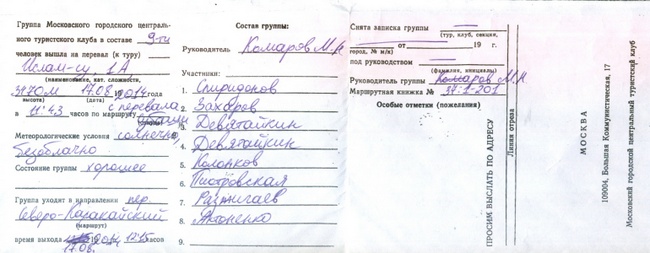 Группа Московского городского централь-
ного туристского клуба в составе 9-ти
человек вышла на перевал (к туру)
1А
(наименование, кат. сложности,
3440м 17.08 2014 года
высота) (дата) с перевала
в 11:43 часов по маршруту
Метеорологические условия солнечно,
безоблачно
Состояние группы хорошее
Группа уходит в направлении пер.
Северо-Каракайский
(маршрут)
время выхода 2014, 12:15 часов
17.08.
Состав группы:
Руководитель Комаров М.Н.
Участники:
1. Спиридонов
2. Захаров
3. Девятайкин
4. Девятайкин
5. Колонков
6. Пиотровская
7. Разжигаев
8. Антоненко
9.
Снята записка группы —
(тур, клуб, секции,
— от — 19 г.
город, № м/к)
под руководством —
(фамилия, инициалы)
Руководитель группы Комаров М.Н.
Маршрутная книжка № 37:1-201
Особые отметки (пожелания)
ПРОСИМ ВЫСЛАТЬ ПО АДРЕСУ
Линия отреза
МОСКВА
109004, Большая Коммунистическая, 17
Московский городской центральный туристский клуб